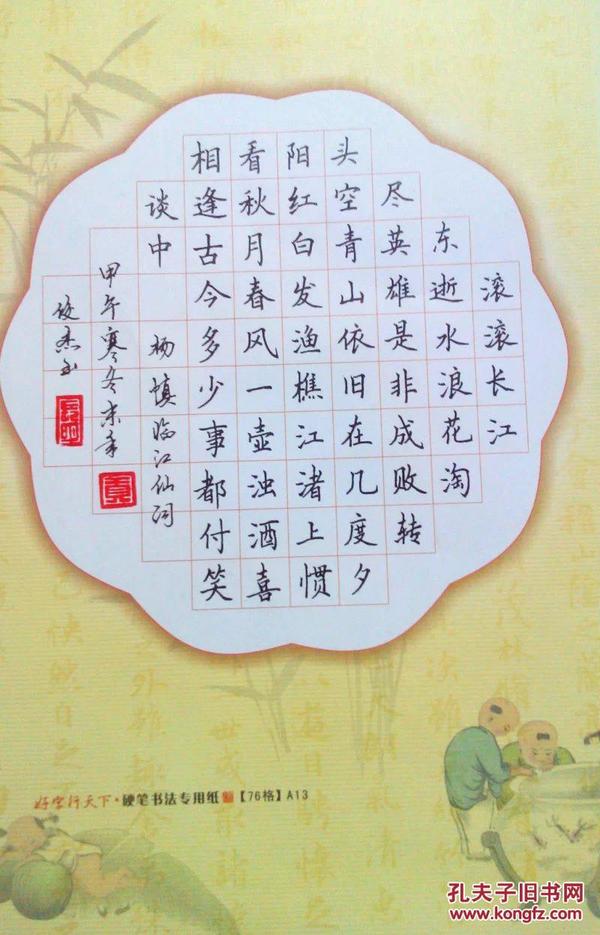 滚滚长江
东逝水浪花淘
尽英雄是非成败转
头空青山依旧在几度夕
阳红白发渔樵江渚上惯
看秋月春风一壶浊酒喜
相逢古今多少事都付笑
谈中 杨慎临江仙词
甲午寒冬
俊杰书
好字行天下·硬笔书法专用纸【76格】A13
孔夫子旧书网
www.kongfz.com